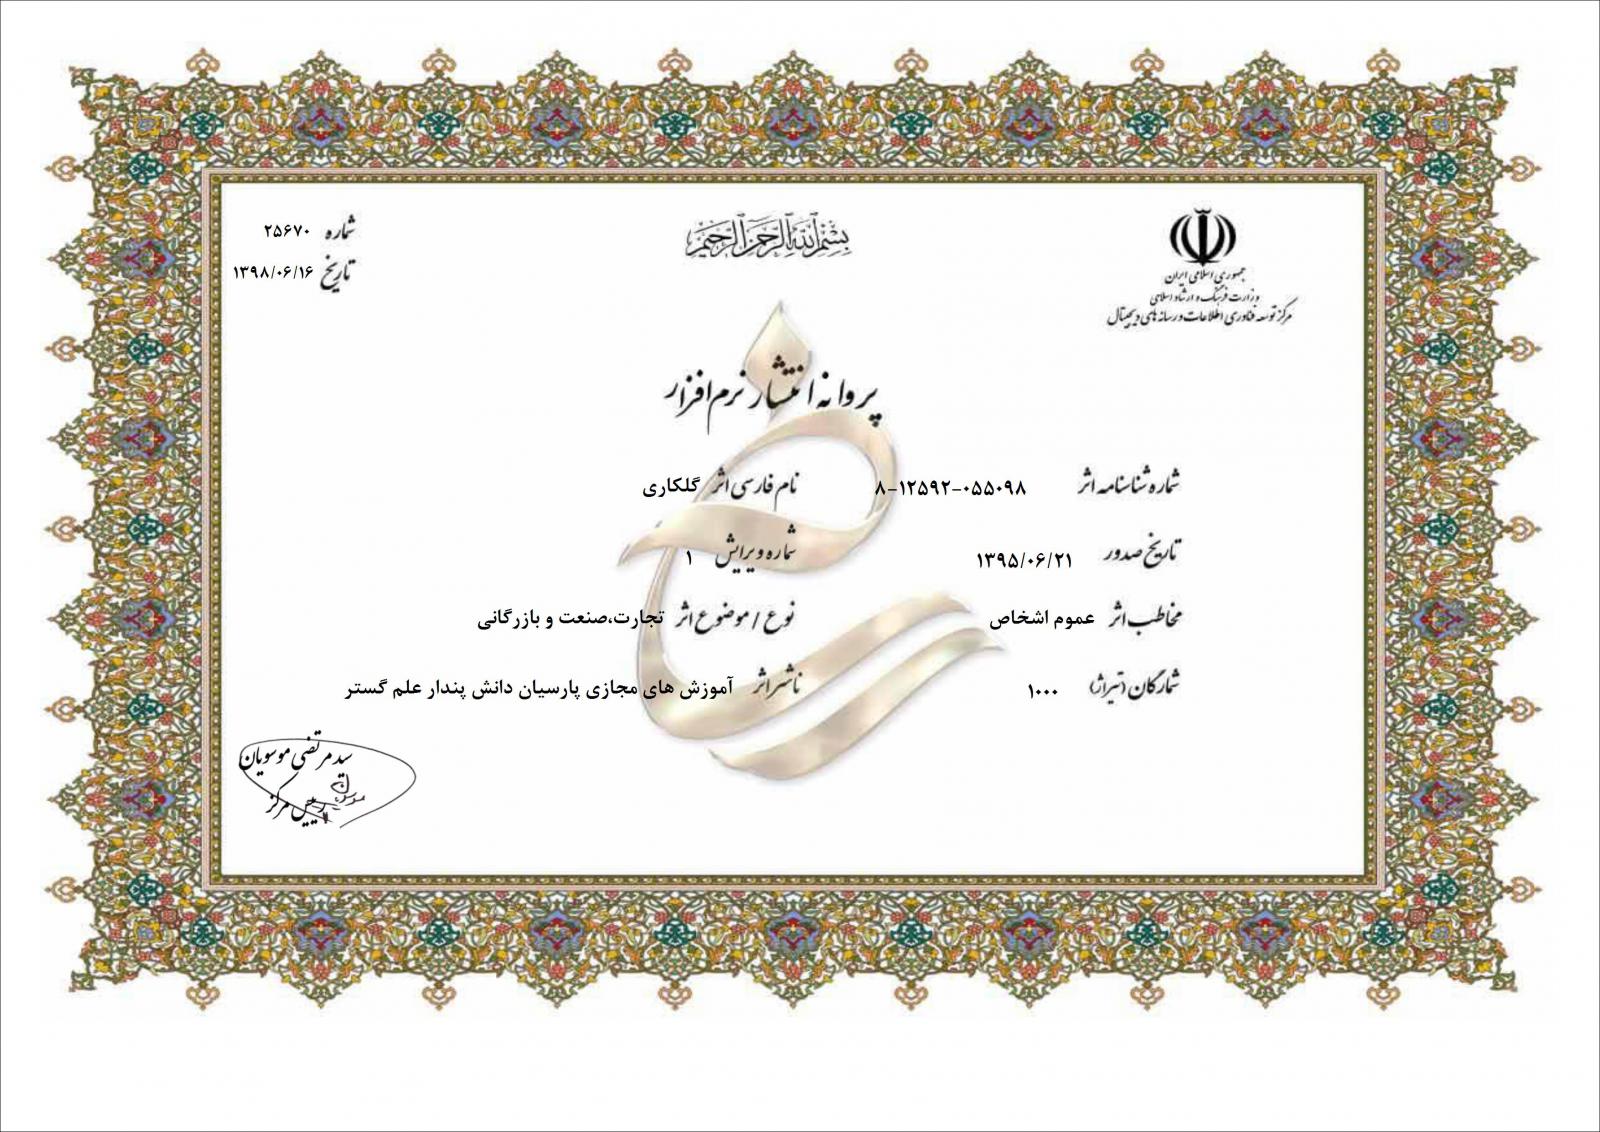 بسم الله الرحمن الرحیم
جمهوری اسلامی ایران
وزارت فرهنگ و ارشاد اسلامی
مرکز توسعه فناوری اطلاعات و رسانه های دیجیتال
شماره ۲۵۶۷۰
تاریخ ۱۳۹۸/۰۶/۱۶
پروانه انتشار نرم افزار
شماره شناسنامه اثر ۸-۱۲۵۹۲-۰۵۵۰۹۸ نام فارسی اثر گلکاری
تاریخ صدور ۱۳۹۵/۰۶/۲۱ شماره ویرایش ۱
مخاطب اثر عموم اشخاص نوع / موضوع اثر تجارت،صنعت و بازرگانی
شمارگان (تیراژ) ۱۰۰۰ ناشر اثر آموزش های مجازی پارسیان دانش پندار علم گستر
سید مرتضی موسویان
رییس مرکز